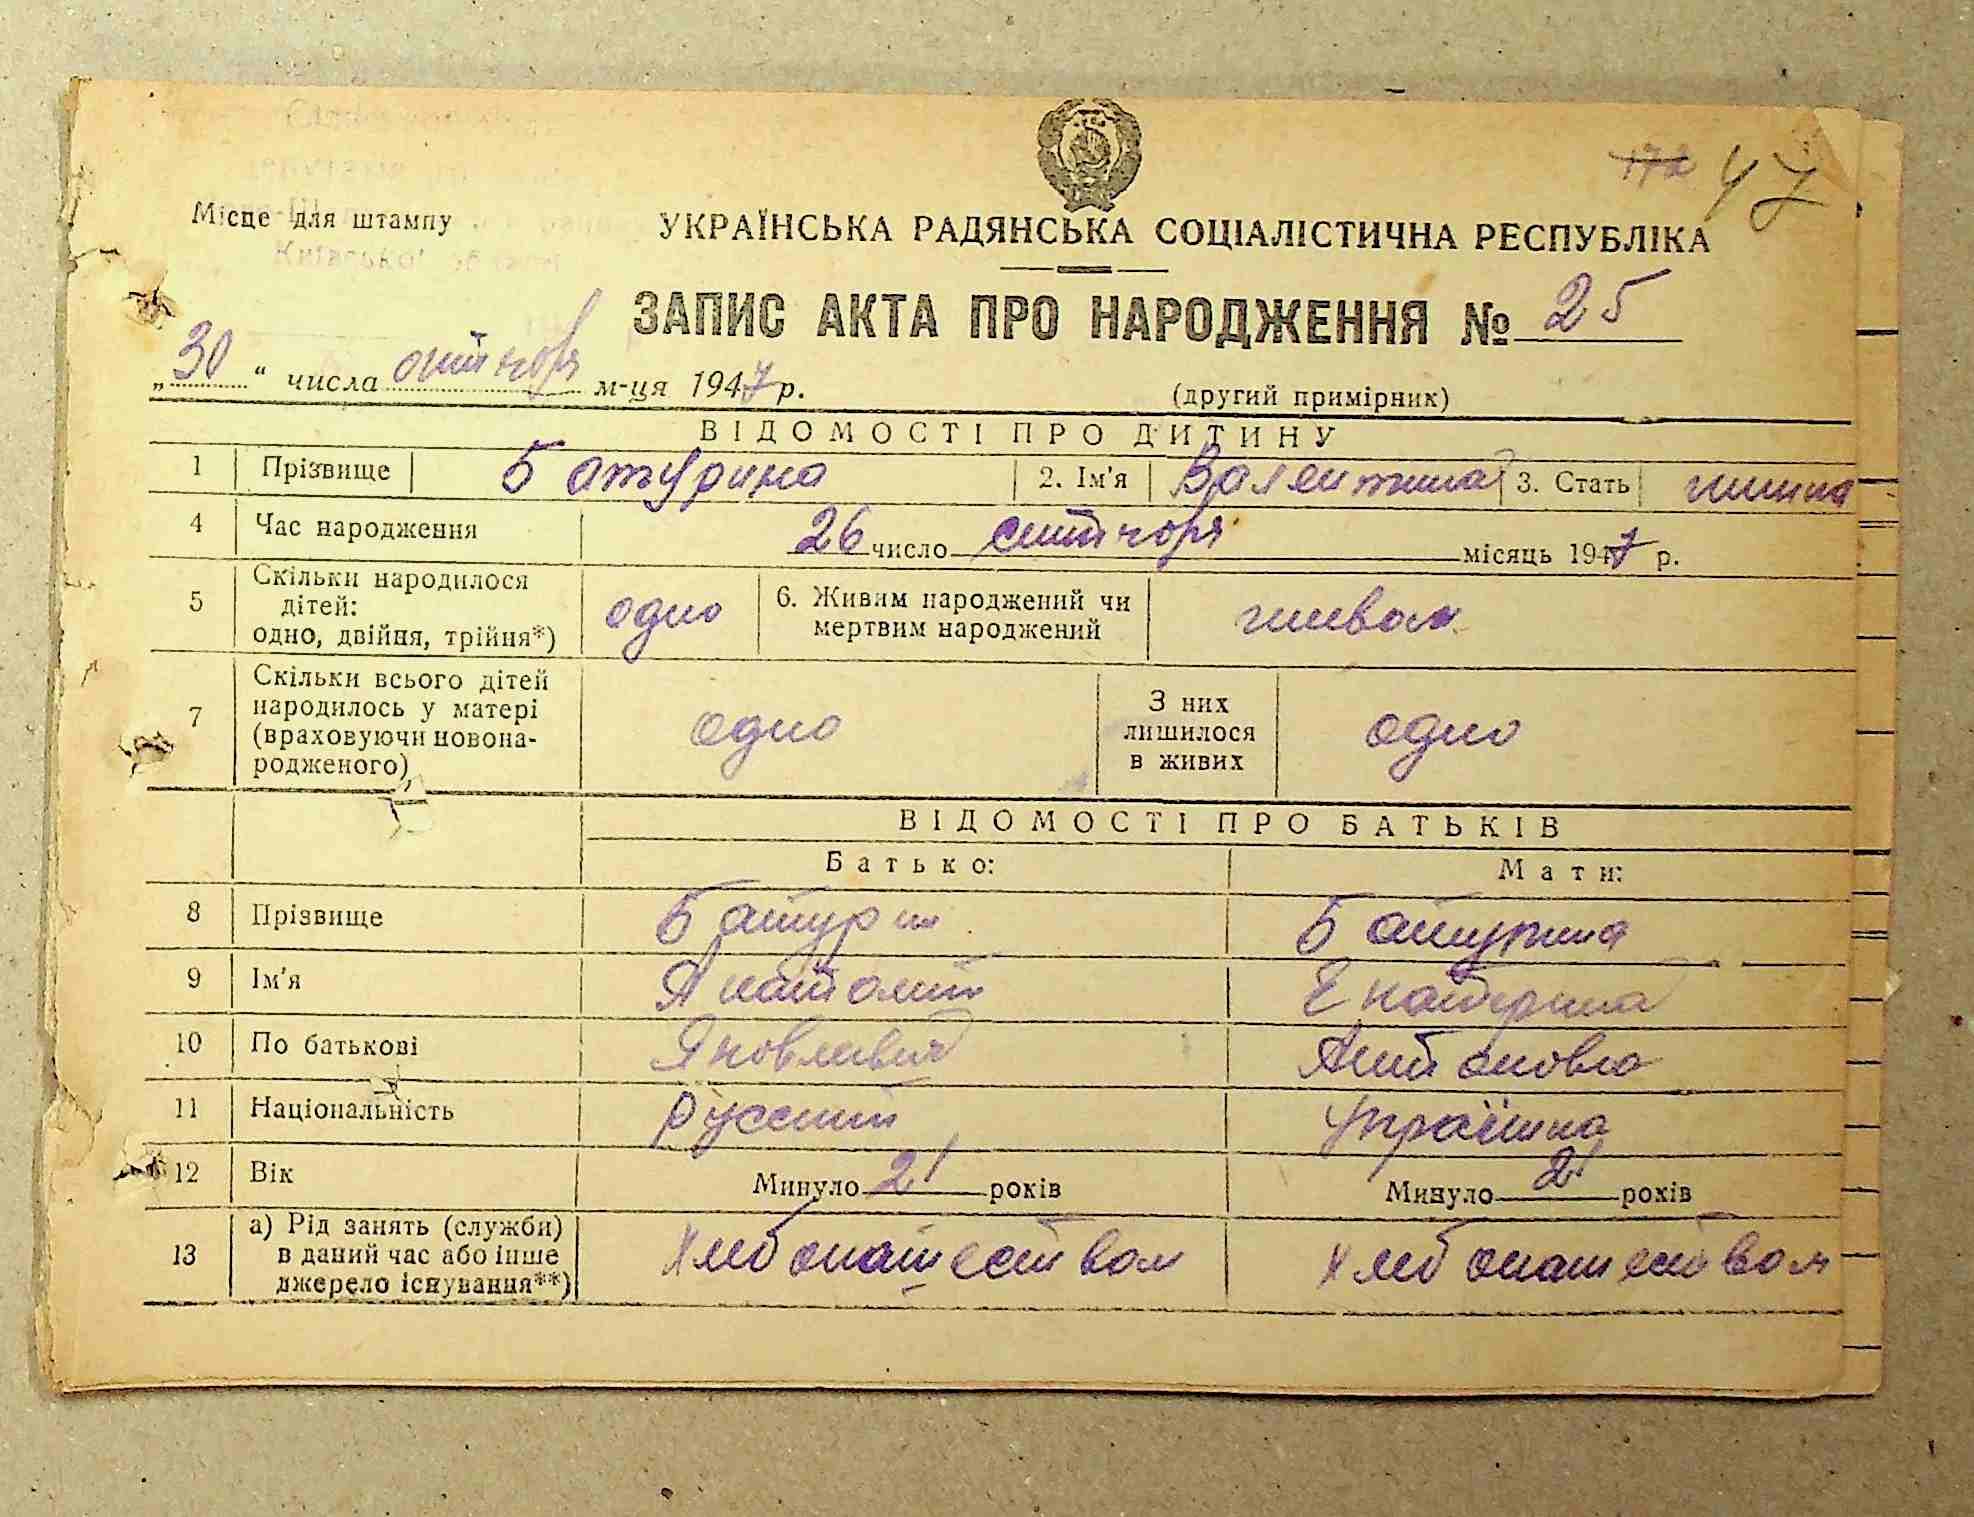 172 47
Місце для штампу
УКРАЇНСЬКА РАДЯНСЬКА СОЦІАЛІСТИЧНА РЕСПУБЛІКА
ЗАПИС АКТА ПРО НАРОДЖЕННЯ № 25
„30“ числа октября м-ця 1947 р.
(другий примірник)
ВІДОМОСТІ ПРО ДИТИНУ
1 Прізвище Батурина 2. Ім'я Валентина 3. Стать
4 Час народження 26 число сентября місяць 1947 р.
5 Скільки народилося дітей: одно, двійня, трійня*) одно 6. Живим народжений чи мертвим народжений живом
7 Скільки всього дітей народилось у матері (враховуючи новонародженого) одно З них лишилося в живих одно
ВІДОМОСТІ ПРО БАТЬКІВ
Батько: Мати:
8 Прізвище Батурин Батурина
9 Ім'я Анатолий Екатерина
10 По батькові Яковлевич Антоновна
11 Національність Русский Українка
12 Вік Минуло 21 років Минуло 21 років
13 а) Рід занять (служби) в даний час або інше джерело існування**) Хлебопашеством Хлебопашеством